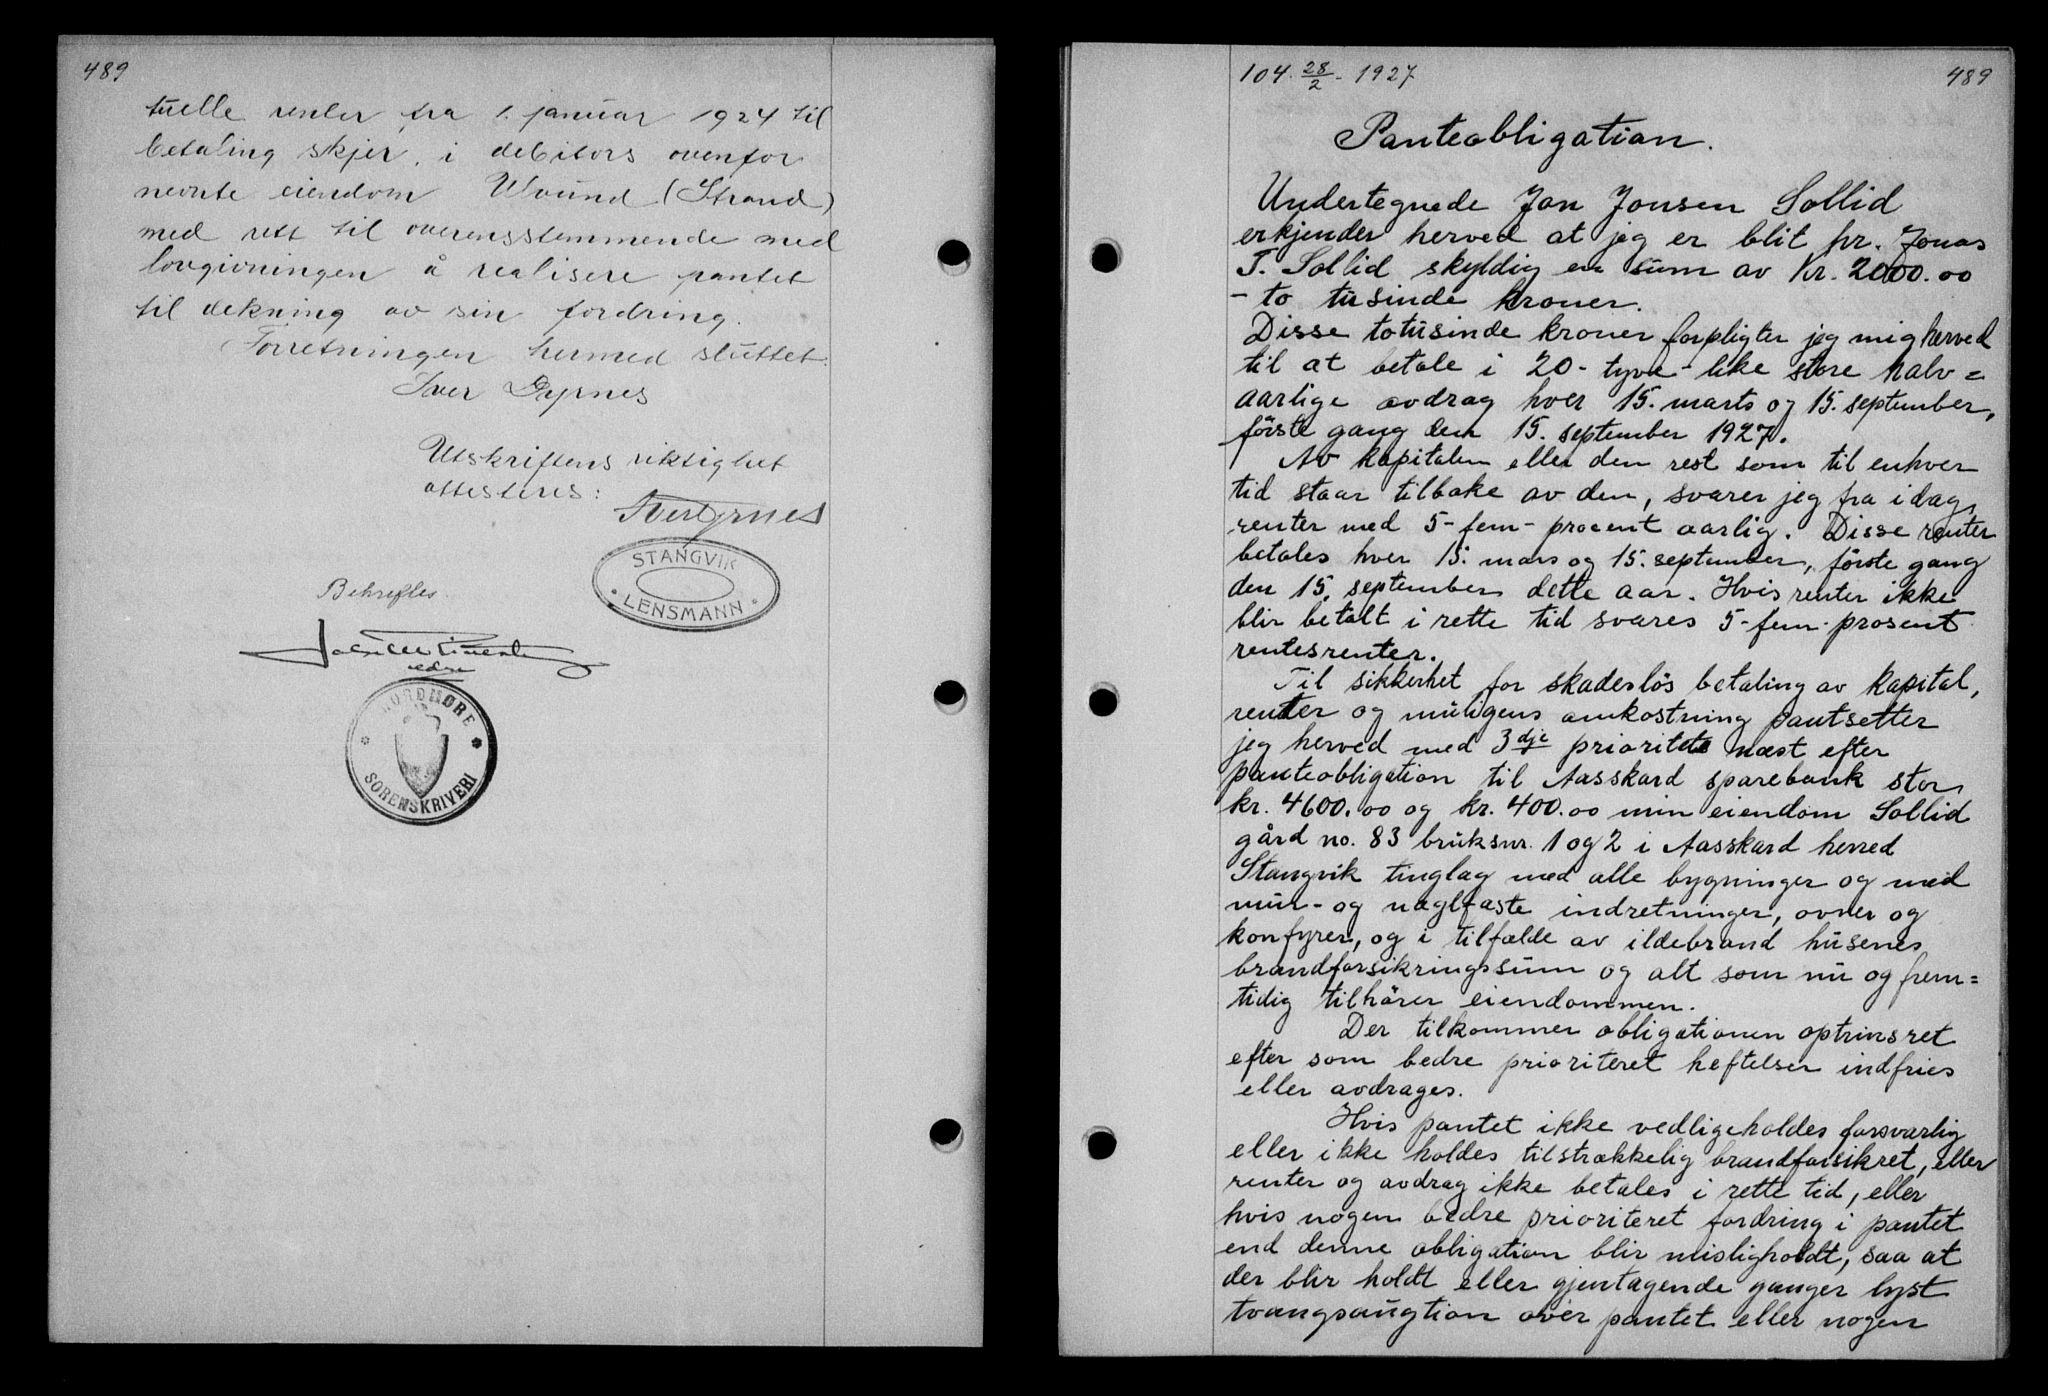 489
tuelle renter fra 1. januar 1924 til
betaling skjer, i debitors ovenfor
nevnte eiendom Ulvund (Strand)
med rett til overensstemmende med
lovgivningen å realisere pantet
til dekning av sin fordring.
Forretningen hermed sluttet.
Iver Dyrnes
Utskriftens riktighet
attesteres:
Iver Dyrnes
STANGVIK
LENSMANN
Bekreftes
NORDMØRE
SORENSKRIVERI
104. 28/2 - 1927
489
Panteobligation.
Undertegnede Jon Jonsen Sollid
erkjender herved at jeg er blit hr. Jonas
J. Sollid skyldig en sum av Kr. 2000.00
- to tusinde kroner.
Disse totusinde kroner forpligter jeg mig herved
til at betale i 20 - tyve - like store halv=
aarlige avdrag hver 15. marts og 15. september,
første gang den 15. september 1927.
Av kapitalen eller den rest som til enhver
tid staar tilbake av den, svarer jeg fra idag,
renter med 5 - fem - procent aarlig. Disse renter
betales hver 15. mars og 15. september, første gang
den 15. september dette aar. Hvis renter ikke
blir betalt i rette tid svares 5 - fem - prosent
rentesrenter.
Til sikkerhet for skadesløs betaling av kapital,
renter og muligens omkostning pantsetter
jeg herved med 3dje prioritets næst efter
panteobligation til Aasskard sparebank stor
kr. 4600.00 og kr. 400.00 min eiendom Sollid
gård no. 83 bruksnr. 1 og 2 i Aasskard herred
Stangvik tinglag med alle bygninger og med
mur- og naglfaste indretninger, ovner og
konfyrer, og i tilfælde av ildebrand husenes
brandforsikringssum og alt som nu og frem=
tidig tilhører eiendommen.
Der tilkommer obligationen optrinsret
efter som bedre prioriteret heftelser indfries
eller avdrages.
Hvis pantet ikke vedligeholdes forsvarlig
eller ikke holdes tilstrækkelig brandforsikret, eller
renter og avdrag ikke betales i rette tid, eller
hvis nogen bedre prioriteret fordring i pantet
end denne obligation blir misligholdt, saa at
der blir holdt eller gjentagende ganger lyst
tvangsaugtion over pantet eller nogen